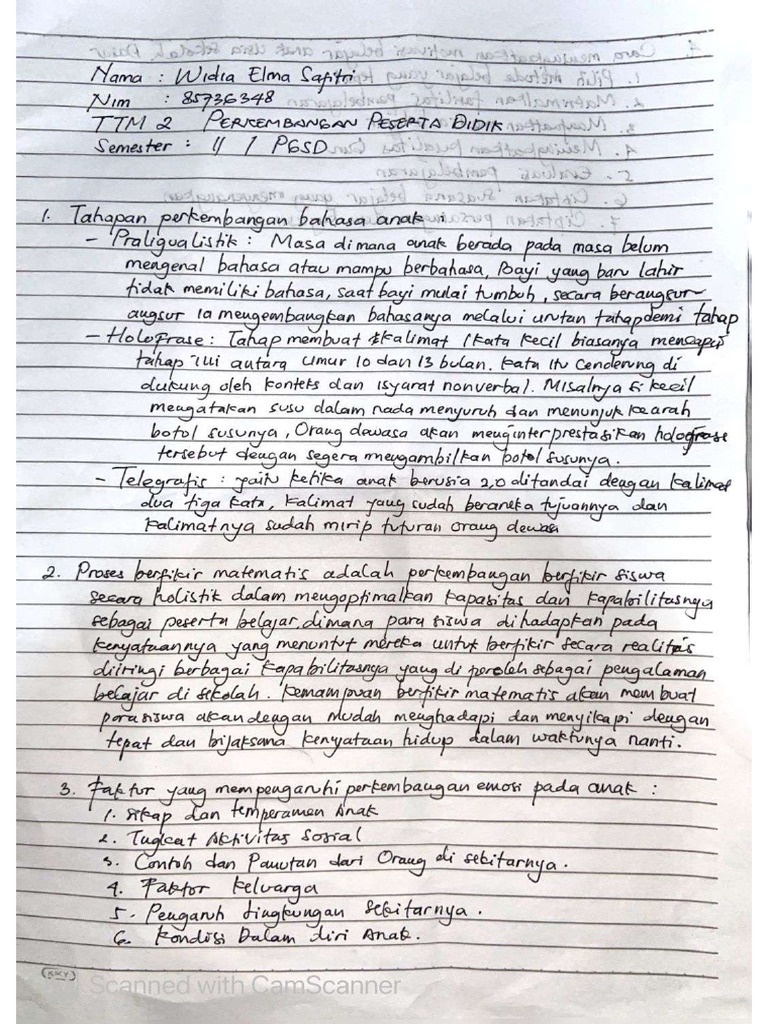 Nama : Widia Elma Safitri
Nim : 85736348
TTM 2 PERKEMBANGAN PESERTA DIDIK
Semester : II / PGSD
1. Tahapan perkembangan bahasa anak :
- Praligualistik : Masa dimana anak berada pada masa belum
mengenal bahasa atau mampu berbahasa, Bayi yang baru lahir
tidak memiliki bahasa, saat bayi mulai tumbuh, secara berangsur
angsur ia mengembangkan bahasanya melalui urutan tahap demi tahap
- Holofrase : Tahap membuat kalimat 1 kata kecil biasanya mencapai
tahap ini antara umur 10 dan 13 bulan. Kata itu cenderung di
dukung oleh konteks dan isyarat nonverbal. Misalnya si kecil
mengatakan susu dalam nada menyuruh dan menunjuk kearah
botol susunya, Orang dawasa akan menginterprestasikan holografse
tersebut dengan segera mengambilkan botol susunya.
- Telegrafis : yaitu ketika anak berusia 2,0 ditandai dengan kalimat
dua tiga kata, kalimat yang sudah beraneka tujuannya dan
kalimatnya sudah mirip tuturan orang dewasa
2. Proses berfikir matematis adalah perkembangan berfikir siswa
secara holistik dalam mengoptimalkan kapasitas dan kapabilitasnya
sebagai peserta belajar, dimana para siswa dihadapkan pada
kenyataannya yang menuntut mereka untuk berfikir secara realitas
diiringi berbagai kapabilitasnya yang di peroleh sebagai pengalaman
belajar di sekolah. Kemampuan berfikir matematis akan membuat
para siswa akan dengan mudah menghadapi dan menyikapi dengan
tepat dan bijaksana kenyataan hidup dalam waktunya nanti.
3. Faktor yang mempengaruhi perkembangan emosi pada anak :
1. Sikap dan temperamen Anak
2. Tingkat Aktivitas Sosial
3. Contoh dan Panutan dari Orang di sekitarnya.
4. Faktor Keluarga
5. Pengaruh lingkungan sekitarnya.
6. Kondisi Dalam diri Anak.
KKY
Scanned with CamScanner